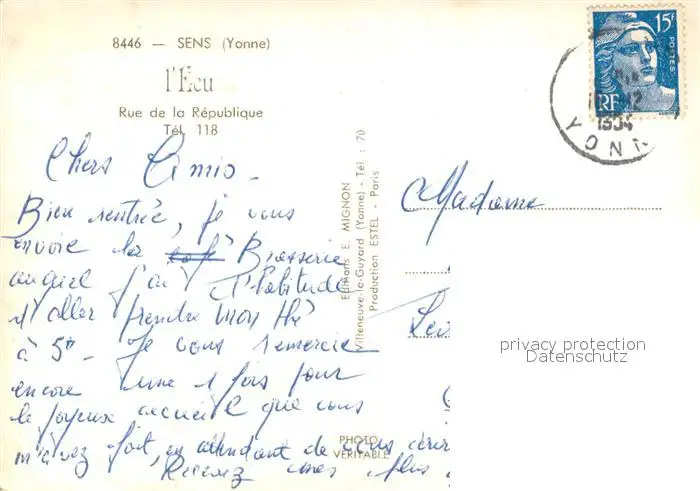 8446 — SENS (Yonne)
l'Ecu
Rue de la République
Tél. 118
Chers Amis -
Bien rentrée, je vous
envoie la café Brasserie
auquel j'ai l'habitude
d'aller prendre mon thé
à 5h - Je vous remercie
encore une fois pour
le joyeux accueil que vous
m'avez fait, en attendant de vous
Recevez mes plus
PHOTO
VÉRITABLE
Editions E. MIGNON
Villeneuve-le-Guyard (Yonne) - Tél. : 70
Production ESTEL - Paris
15F
POSTES
RF
12
1954
YONN
Madame
privacy protection
Datenschutz